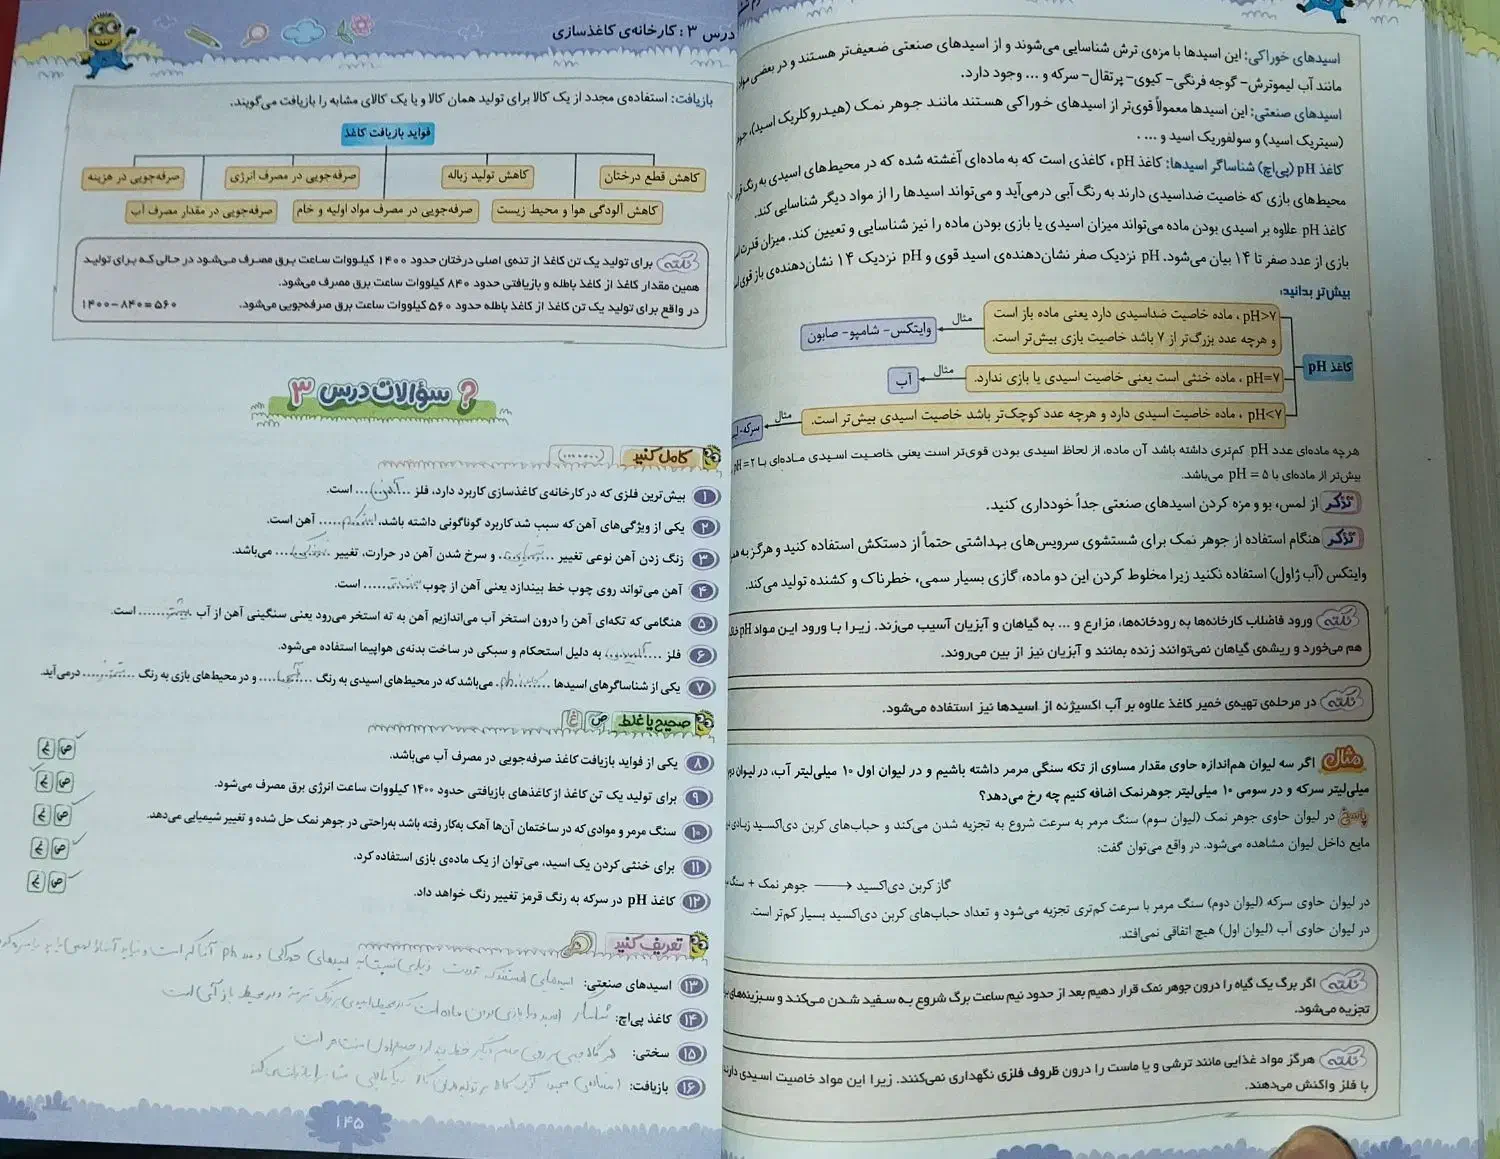 اسیدهای خوراکی: این اسیدها با مزه‌ی ترش شناسایی می‌شوند و از اسیدهای صنعتی ضعیف‌تر هستند و در بعضی مواد
مانند آب لیموترش- گوجه فرنگی- کیوی- پرتقال- سرکه و ... وجود دارد.
اسیدهای صنعتی: این اسیدها معمولاً قوی‌تر از اسیدهای خوراکی هستند مانند جوهر نمک (هیدروکلریک اسید)،
(سیتریک اسید) و سولفوریک اسید و ... .
کاغذ pH (پی‌اچ) شناساگر اسیدها: کاغذ pH، کاغذی است که به ماده‌ای آغشته شده که در محیط‌های اسیدی به رنگ
محیط‌های بازی که خاصیت ضداسیدی دارند به رنگ آبی درمی‌آید و می‌تواند اسیدها را از مواد دیگر شناسایی کند.
کاغذ pH علاوه بر اسیدی بودن ماده می‌تواند میزان اسیدی یا بازی بودن ماده را نیز شناسایی و تعیین کند. میزان قدرت
بازی از عدد صفر تا ۱۴ بیان می‌شود. pH نزدیک صفر نشان‌دهنده‌ی اسید قوی و pH نزدیک ۱۴ نشان‌دهنده‌ی باز قوی
بیش‌تر بدانید:
کاغذ pH
pH>۷ ، ماده خاصیت ضداسیدی دارد یعنی ماده باز است
و هرچه عدد بزرگ‌تر از ۷ باشد خاصیت بازی بیش‌تر است.
مثال
وایتکس- شامپو- صابون
pH=۷ ، ماده خنثی است یعنی خاصیت اسیدی یا بازی ندارد.
مثال
آب
pH<۷ ، ماده خاصیت اسیدی دارد و هرچه عدد کوچک‌تر باشد خاصیت اسیدی بیش‌تر است.
مثال
سرکه-
هرچه ماده‌ای عدد pH کم‌تری داشته باشد آن ماده، از لحاظ اسیدی بودن قوی‌تر است یعنی خاصیت اسیدی ماده‌ای با pH = ۲
بیش‌تر از ماده‌ای با pH = ۵ می‌باشد.
تذکر از لمس، بو و مزه کردن اسیدهای صنعتی جداً خودداری کنید.
تذکر هنگام استفاده از جوهر نمک برای شستشوی سرویس‌های بهداشتی حتماً از دستکش استفاده کنید و هرگز به
وایتکس (آب ژاول) استفاده نکنید زیرا مخلوط کردن این دو ماده، گازی بسیار سمی، خطرناک و کشنده تولید می‌کند.
نکته ورود فاضلاب کارخانه‌ها به رودخانه‌ها، مزارع و ... به گیاهان و آبزیان آسیب می‌زند. زیرا با ورود این مواد pH
هم می‌خورد و ریشه‌ی گیاهان نمی‌توانند زنده بمانند و آبزیان نیز از بین می‌روند.
نکته در مرحله‌ی تهیه‌ی خمیر کاغذ علاوه بر آب اکسیژنه از اسیدها نیز استفاده می‌شود.
مثال اگر سه لیوان هم‌اندازه حاوی مقدار مساوی از تکه سنگی مرمر داشته باشیم و در لیوان اول ۱۰ میلی‌لیتر آب، در لیوان
میلی‌لیتر سرکه و در سومی ۱۰ میلی‌لیتر جوهرنمک اضافه کنیم چه رخ می‌دهد؟
پاسخ در لیوان حاوی جوهر نمک (لیوان سوم) سنگ مرمر به سرعت شروع به تجزیه شدن می‌کند و حباب‌های کربن دی‌اکسید زیادی
مایع داخل لیوان مشاهده می‌شود. در واقع می‌توان گفت:
گاز کربن دی‌اکسید ⟵ جوهر نمک +
در لیوان حاوی سرکه (لیوان دوم) سنگ مرمر با سرعت کم‌تری تجزیه می‌شود و تعداد حباب‌های کربن دی‌اکسید بسیار کم‌تر است.
در لیوان حاوی آب (لیوان اول) هیچ اتفاقی نمی‌افتد.
نکته اگر برگ یک گیاه را درون جوهر نمک قرار دهیم بعد از حدود نیم ساعت برگ شروع به سفید شدن می‌کند و سبزینه‌های
تجزیه می‌شود.
نکته هرگز مواد غذایی مانند ترشی و یا ماست را درون ظروف فلزی نگهداری نمی‌کنند. زیرا این مواد خاصیت اسیدی
با فلز واکنش می‌دهند.
درس ۳ : کارخانه‌ی کاغذسازی
بازیافت: استفاده‌ی مجدد از یک کالا برای تولید همان کالا و یا یک کالای مشابه را بازیافت می‌گویند.
فواید بازیافت کاغذ
کاهش قطع درختان
کاهش تولید زباله
صرفه‌جویی در مصرف انرژی
صرفه‌جویی در هزینه
کاهش آلودگی هوا و محیط زیست
صرفه‌جویی در مصرف مواد اولیه و خام
صرفه‌جویی در مقدار مصرف آب
نکته برای تولید یک تن کاغذ از تنه‌ی اصلی درختان حدود ۱۴۰۰ کیلووات ساعت برق مصرف می‌شود در حالی که برای تولید
همین مقدار کاغذ از کاغذ باطله و بازیافتی حدود ۸۴۰ کیلووات ساعت برق مصرف می‌شود.
در واقع برای تولید یک تن کاغذ از کاغذ باطله حدود ۵۶۰ کیلووات ساعت برق صرفه‌جویی می‌شود. ۱۴۰۰-۸۴۰=۵۶۰
سؤالات درس ۳ ؟
کامل کنید (.......)
۱ بیش‌ترین فلزی که در کارخانه‌ی کاغذسازی کاربرد دارد، فلز ... آهن ... است.
۲ یکی از ویژگی‌های آهن که سبب شد کاربرد گوناگونی داشته باشد، استحکام ..... آهن است.
۳ زنگ زدن آهن نوعی تغییر ... شیمیایی ... و سرخ شدن آهن در حرارت، تغییر ... فیزیکی ... می‌باشد.
۴ آهن می‌تواند روی چوب خط بیندازد یعنی آهن از چوب سخت‌تر ....... است.
۵ هنگامی که تکه‌ای آهن را درون استخر آب می‌اندازیم آهن به ته استخر می‌رود یعنی سنگینی آهن از آب بیشتر ....... است.
۶ فلز ... آلومینیوم ... به دلیل استحکام و سبکی در ساخت بدنه‌ی هواپیما استفاده می‌شود.
۷ یکی از شناساگرهای اسیدها ... کاغذ ph ... می‌باشد که در محیط‌های اسیدی به رنگ ....... و در محیط‌های بازی به رنگ ....... درمی‌آید.
صحیح یا غلط ص غ
۸ یکی از فواید بازیافت کاغذ صرفه‌جویی در مصرف آب می‌باشد. ص غ
۹ برای تولید یک تن کاغذ از کاغذهای بازیافتی حدود ۱۴۰۰ کیلووات ساعت انرژی برق مصرف می‌شود. ص غ
۱۰ سنگ مرمر و موادی که در ساختمان آن‌ها آهک به‌کار رفته باشد به‌راحتی در جوهر نمک حل شده و تغییر شیمیایی می‌دهد. ص غ
۱۱ برای خنثی کردن یک اسید، می‌توان از یک ماده‌ی بازی استفاده کرد. ص غ
۱۲ کاغذ pH در سرکه به رنگ قرمز تغییر رنگ خواهد داد. ص غ
تعریف کنید
۱۳ اسیدهای صنعتی: اسیدهای هستند که قدرت زیادی نسبت به اسیدهای خوراکی و عدد ph آنها کم است و نباید آنها را لمس یا بو یا مزه کرد
۱۴ کاغذ پی‌اچ: شناساگر اسید و یا بازی بودن ماده است که در محیط اسیدی به رنگ قرمز و در محیط باز آبی است
۱۵ سختی: هرگاه جسمی بر روی جسم دیگر خط بیندازد جسم اول سخت‌تر است
۱۶ بازیافت: استفاده‌ی مجدد از یک کالا برای تولید همان کالا و یا کالایی مشابه را بازیافت می‌گویند
۱۴۵